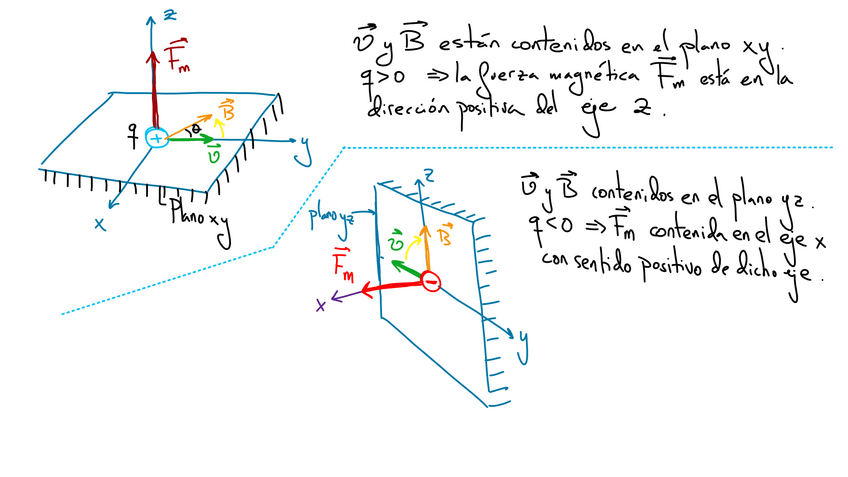 z
F⃗m
v⃗ y B⃗ están contenidos en el plano xy.
q>0 ⇒ la fuerza magnética F⃗m está en la
dirección positiva del eje z.
q
B⃗
θ
+
v⃗
y
x
Plano xy
z
plano yz
v⃗
B⃗
F⃗m
x
−
y
v⃗ y B⃗ contenidos en el plano yz.
q<0 ⇒ F⃗m contenida en el eje x
con sentido positivo de dicho eje.